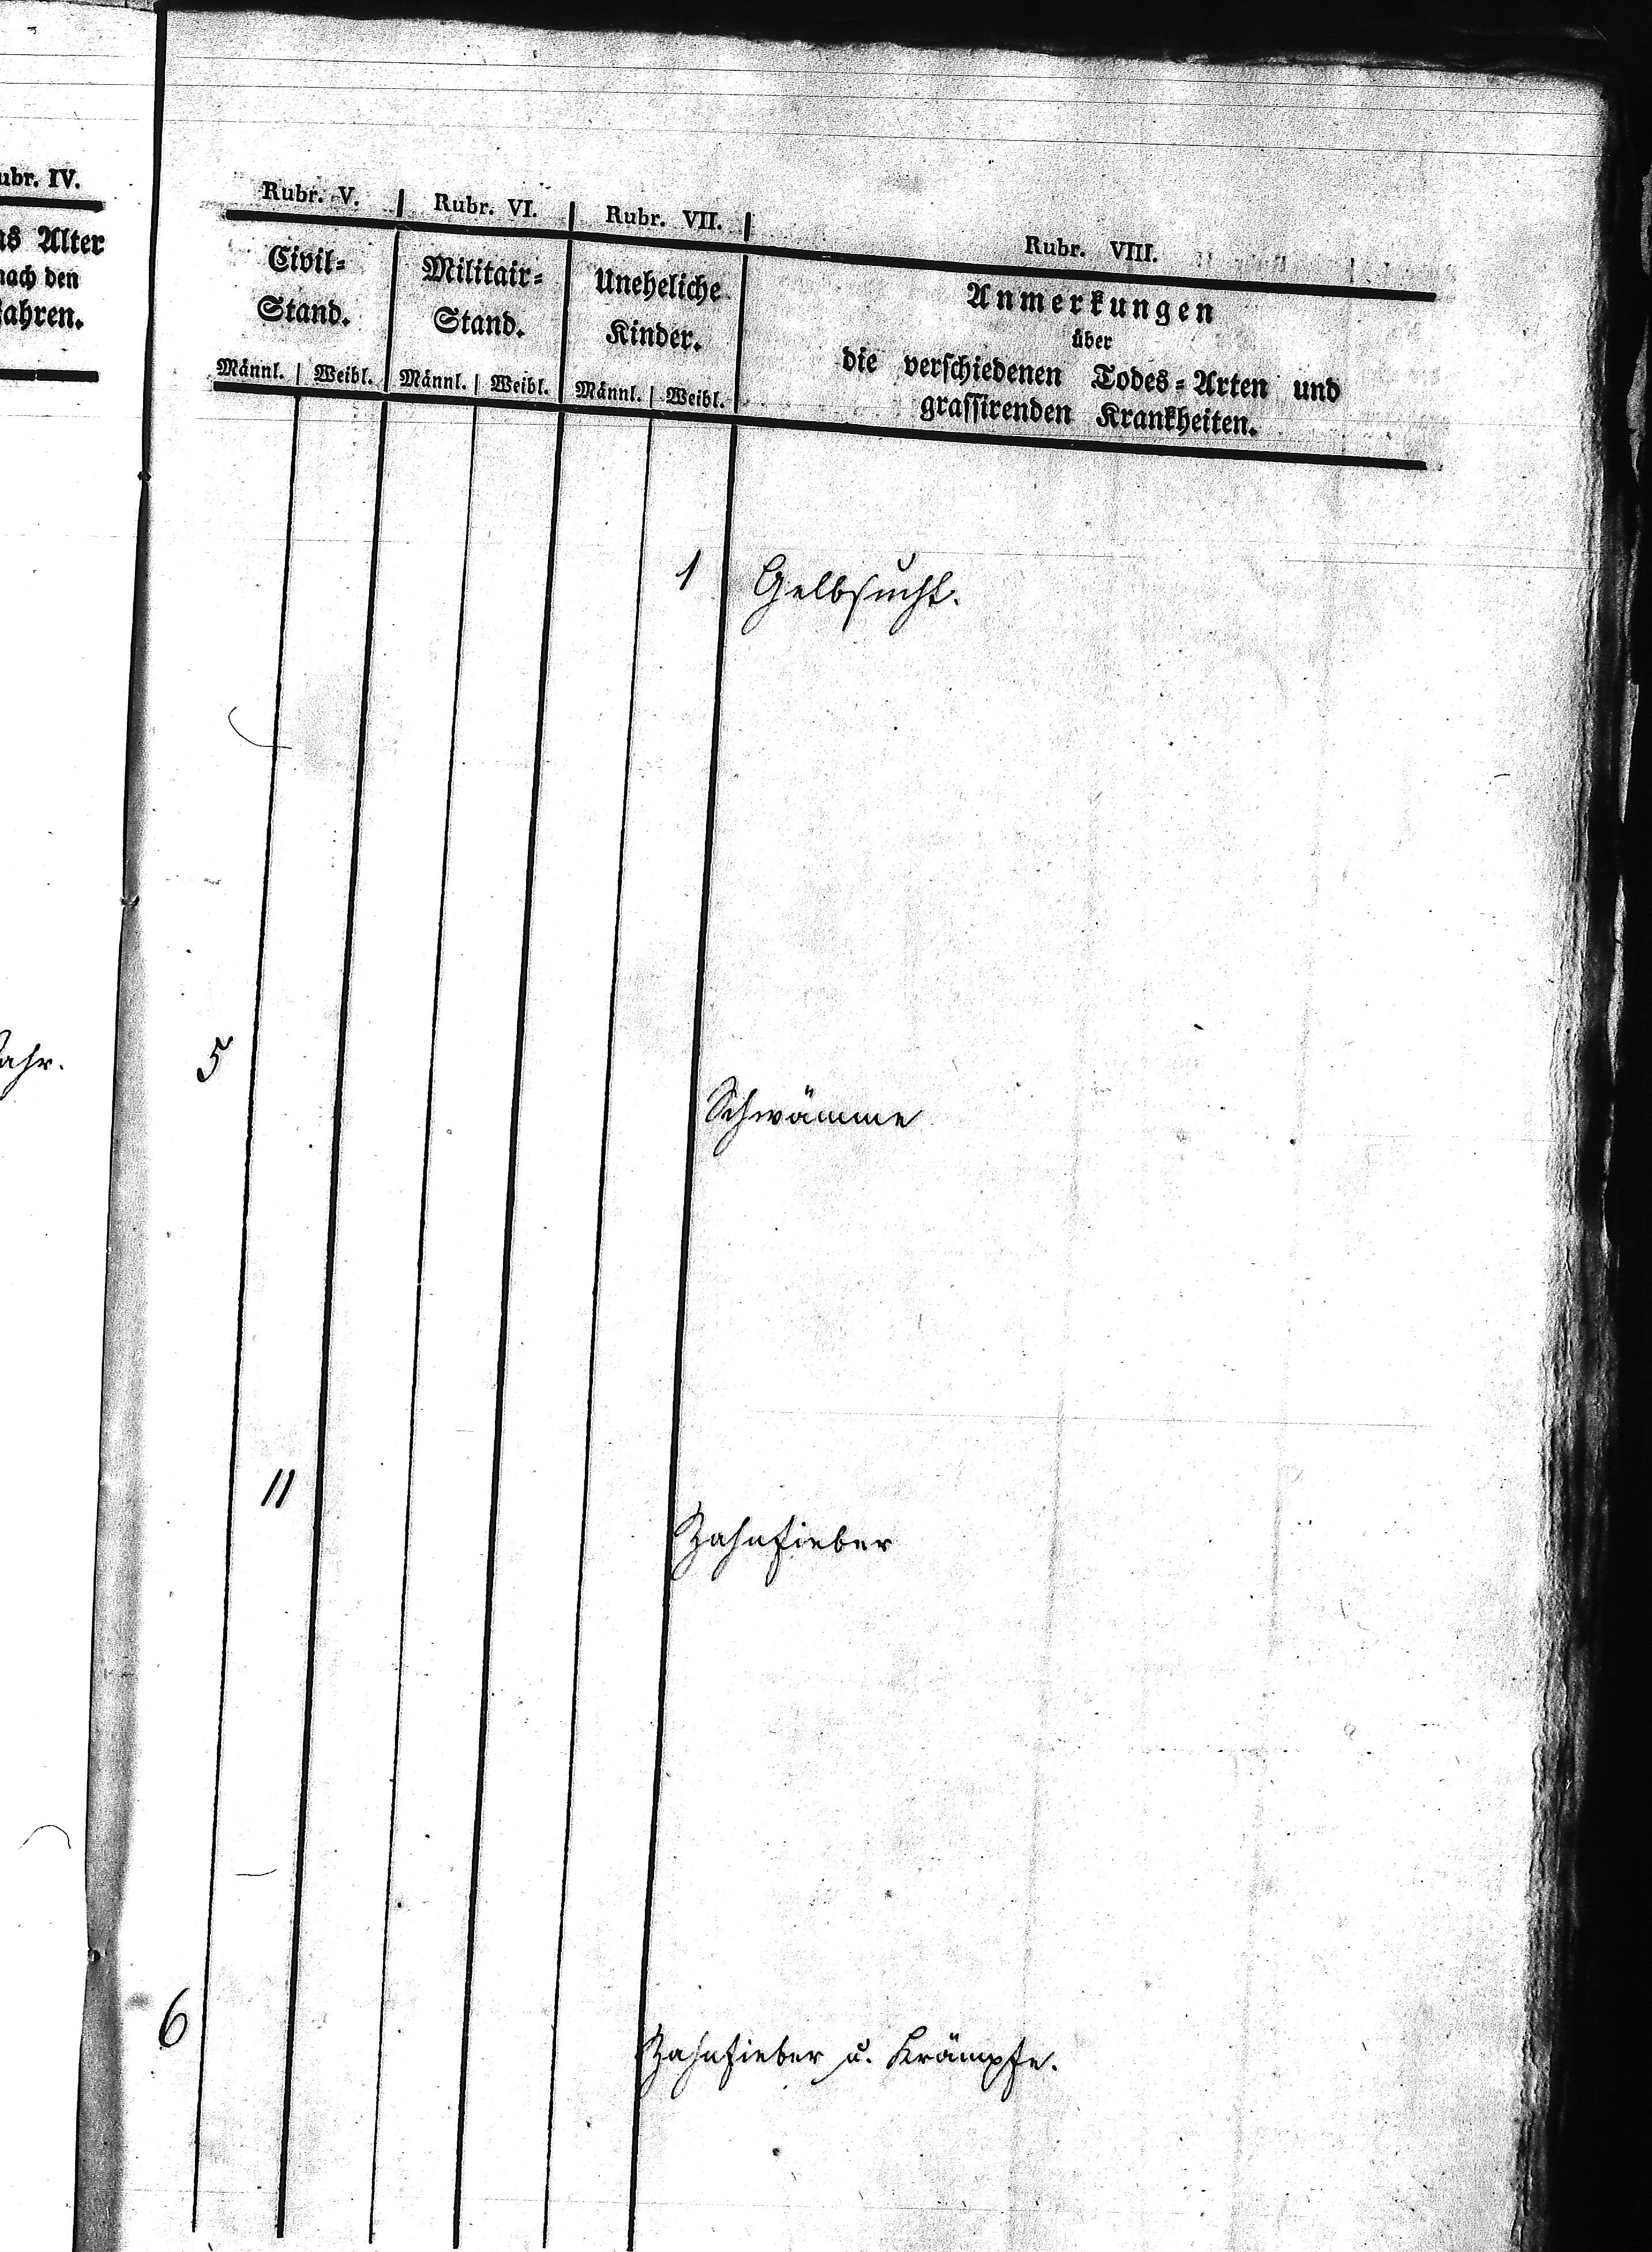 Rubr. V. | Rubr. VI. | Rubr. VII. | Rubr. VIII.
Civil=
Stand.
Männl. | Weibl.
Militair=
Stand.
Männl. | Weibl.
Uneheliche
Kinder.
Männl. | Weibl.
Anmerkungen
über
die verschiedenen Todes=Arten und
grassirenden Krankheiten.
ubr. IV.
as Alter
nach den
Jahren.
1 Gelbsucht.
Jahr.
5 Schwämme
11 Zahnfieber
6 Zahnfieber u. Krämpfe.